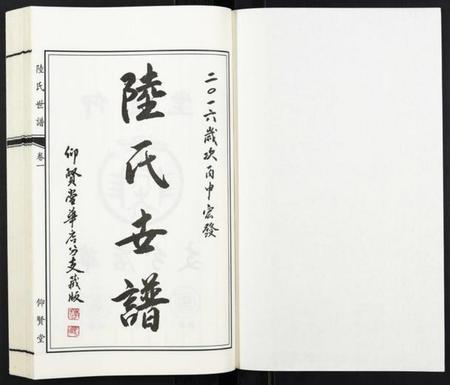 二〇一六歲次丙申宏發
陸氏世譜
仰賢堂華居公支藏版
陸氏世譜
卷一
仰賢堂